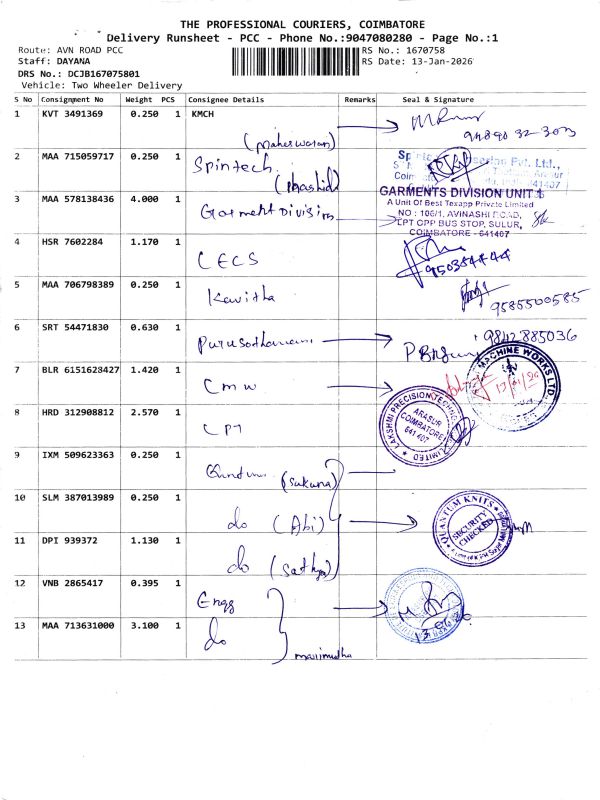 THE PROFESSIONAL COURIERS, COIMBATORE
Delivery Runsheet - PCC - Phone No.:9047080280 - Page No.:1
Route: AVN ROAD PCC
RS No.: 1670758
Staff: DAYANA
RS Date: 13-Jan-2026
DRS No.: DCJB167075801
Vehicle: Two Wheeler Delivery
S No Consignment No Weight PCS Consignee Details Remarks Seal & Signature
1 KVT 3491369 0.250 1 KMCH
(Maheswaran)
2 MAA 715059717 0.250 1 Spintech
(Rashid)
3 MAA 578138436 4.000 1 Garment Division
GARMENTS DIVISION UNIT
A Unit Of Best Texapp Private Limited
NO : 106/1, AVINASHI ROAD,
LPT OPP BUS STOP, SULUR,
COIMBATORE - 641407
4 HSR 7602284 1.170 1 CECS
5 MAA 706798389 0.250 1 Kavitha
9585500585
6 SRT 54471830 0.630 1 Purusothamam
9842885036
7 BLR 6151628427 1.420 1 CMW
MACHINE WORKS LTD.
8 HRD 312908812 2.570 1 CPT
LAKSHMI PRECISION TECHNOLOGIES LIMITED
ARASUR
COIMBATORE
641 407
9 IXM 509623363 0.250 1 (Sukuna)
10 SLM 387013989 0.250 1 do (Abi)
QUANTUM KNITS
SECURITY
CHECKED
11 DPI 939372 1.130 1 do (Sathya)
12 VNB 2865417 0.395 1 Engg
13 MAA 713631000 3.100 1 do
marimutha